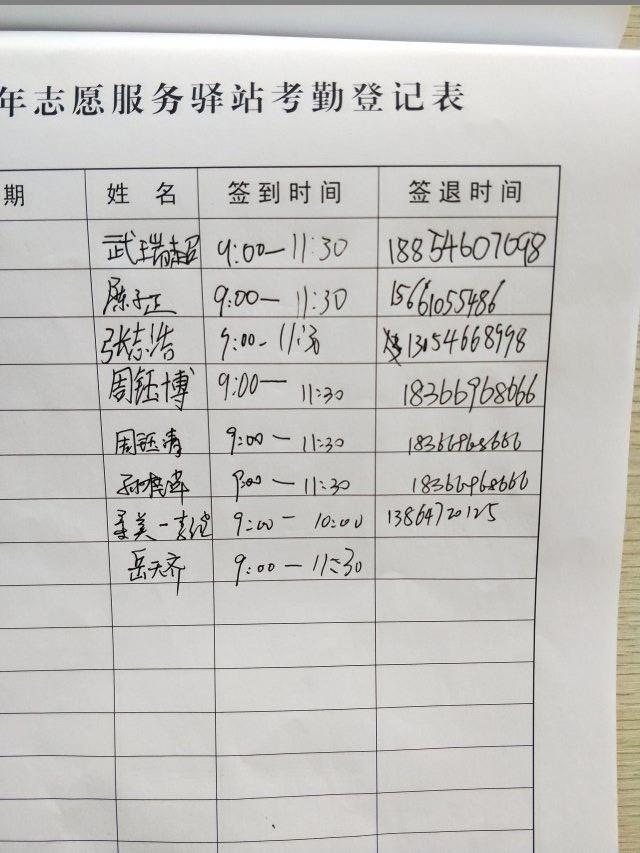 年志愿服务驿站考勤登记表
期 姓名 签到时间 签退时间
武瑞超 9:00—11:30 18854607698
陈子正 9:00—11:30 15661055486
张志浩 9:00-11:30 13054668998
周钰博 9:00—11:30 18366968666
周钰清 9:00—11:30 18366968666
9:00—11:30 18366968666
9:00-10:00 13864720125
岳天齐 9:00—11:30